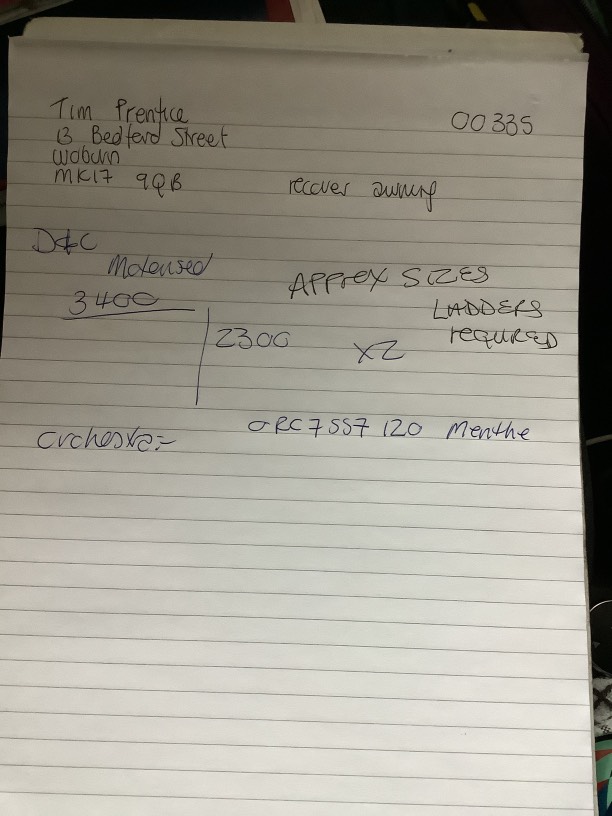 Tim Prentice 00335
13 Bedford Street
Woburn
MK17 9QB recover awning
D&C
Motorised APPROX SIZES
3400 LADDERS
2300 x2 REQUIRED
Orchestra= ORC 7557 120 Menthe